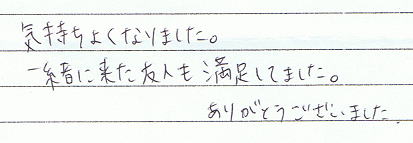 気持ちよくなりました。
一緒に来た友人も満足してました。
ありがとうございました